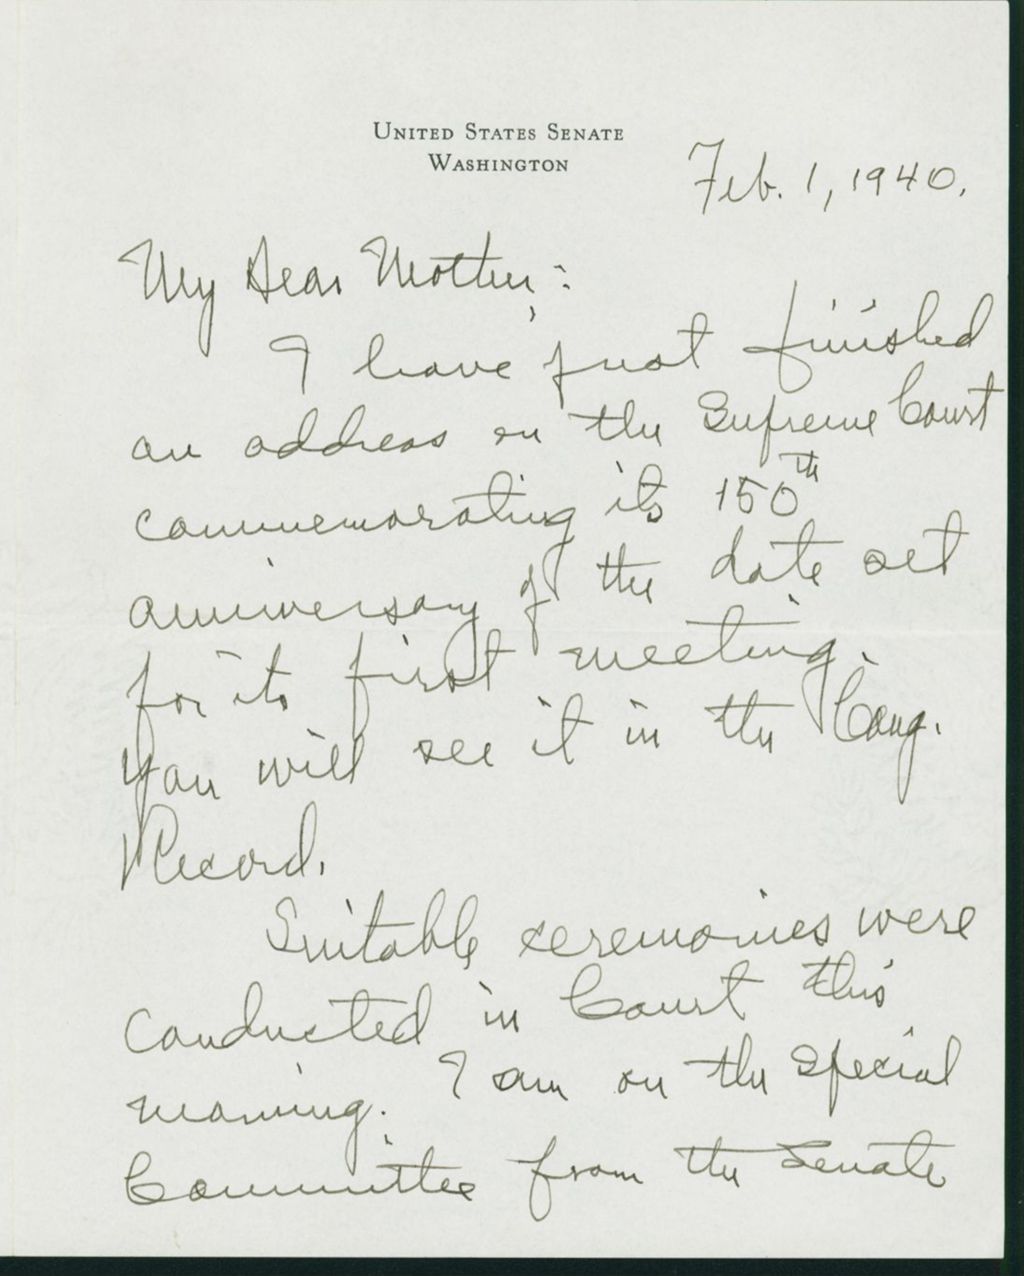 UNITED STATES SENATE
WASHINGTON
Feb. 1, 1940.
My Dear Mother:
I have just finished
an address on the Supreme Court
commemorating its 150th
anniversary of the date set
for its first meeting.
You will see it in the Cong.
Record.
Suitable ceremonies were
conducted in Court this
morning. I am on the special
Committee from the Senate